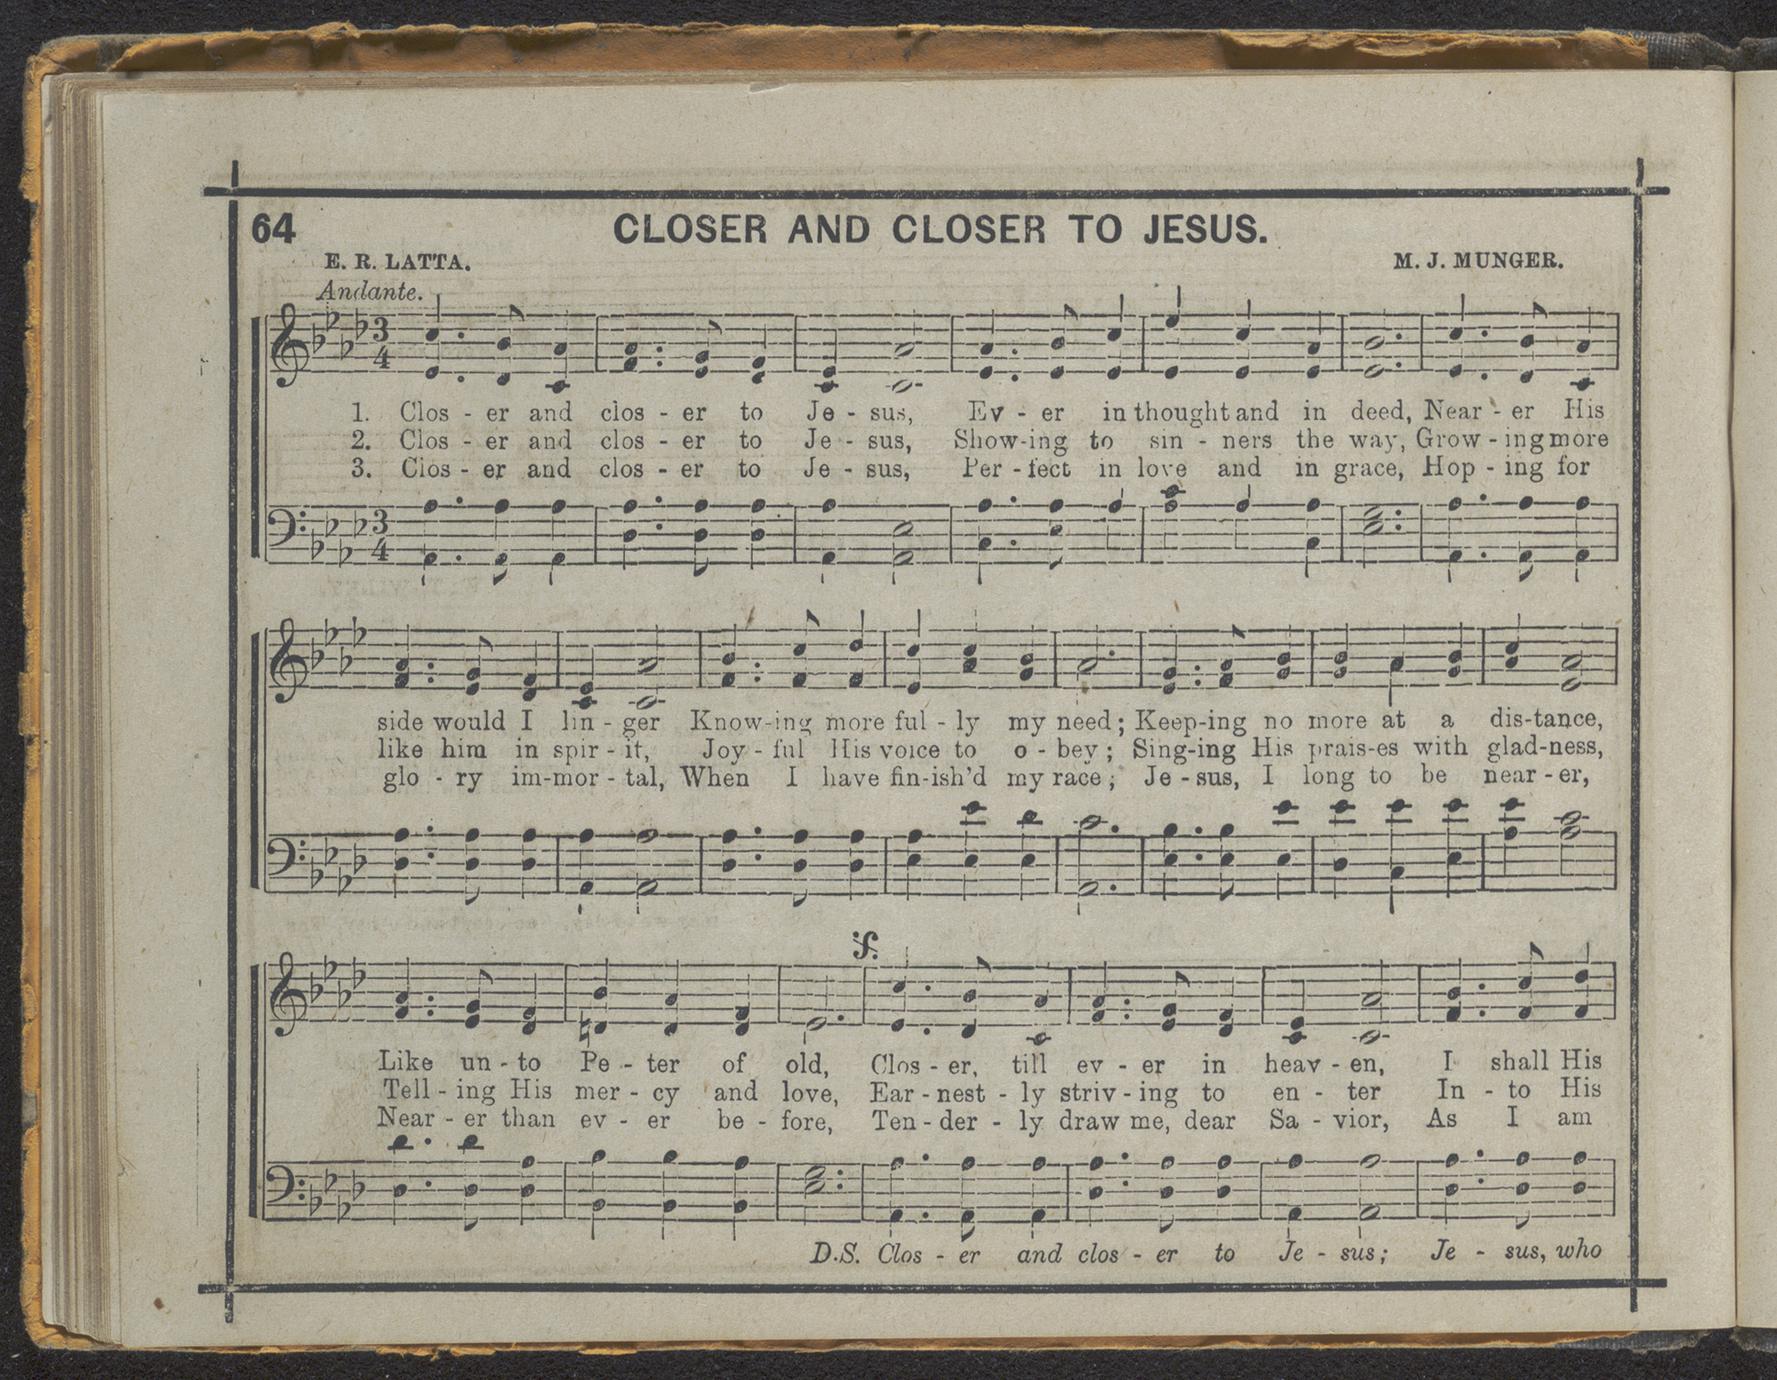 64
CLOSER AND CLOSER TO JESUS.
E. R. LATTA.
M. J. MUNGER.
Andante.
3
4
1. Clos - er and clos - er to Je - sus, Ev - er in thought and in deed, Near - er His
2. Clos - er and clos - er to Je - sus, Show-ing to sin - ners the way, Grow - ing more
3. Clos - er and clos - er to Je - sus, Per - fect in love and in grace, Hop - ing for
3
4
side would I lin - ger Know-ing more ful - ly my need; Keep-ing no more at a dis-tance,
like him in spir - it, Joy - ful His voice to o - bey; Sing-ing His prais-es with glad-ness,
glo - ry im-mor - tal, When I have fin-ish'd my race; Je - sus, I long to be near - er,
Like un - to Pe - ter of old, Clos - er, till ev - er in heav - en, I shall His
Tell - ing His mer - cy and love, Ear - nest - ly striv - ing to en - ter In - to His
Near - er than ev - er be - fore, Ten - der - ly draw me, dear Sa - vior, As I am
D.S. Clos - er and clos - er to Je - sus; Je - sus, who